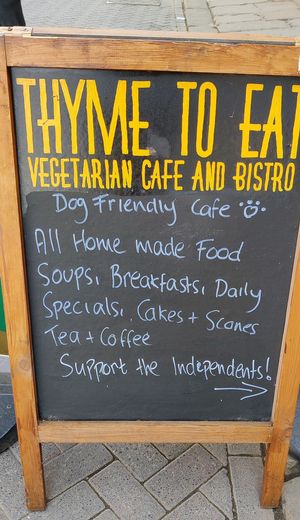 THYME TO EAT
VEGETARIAN CAFE AND BISTRO
Dog Friendly Cafe
All Home made Food
Soups, Breakfasts, Daily
Specials, Cakes + Scones
Tea + Coffee
Support the Independents!